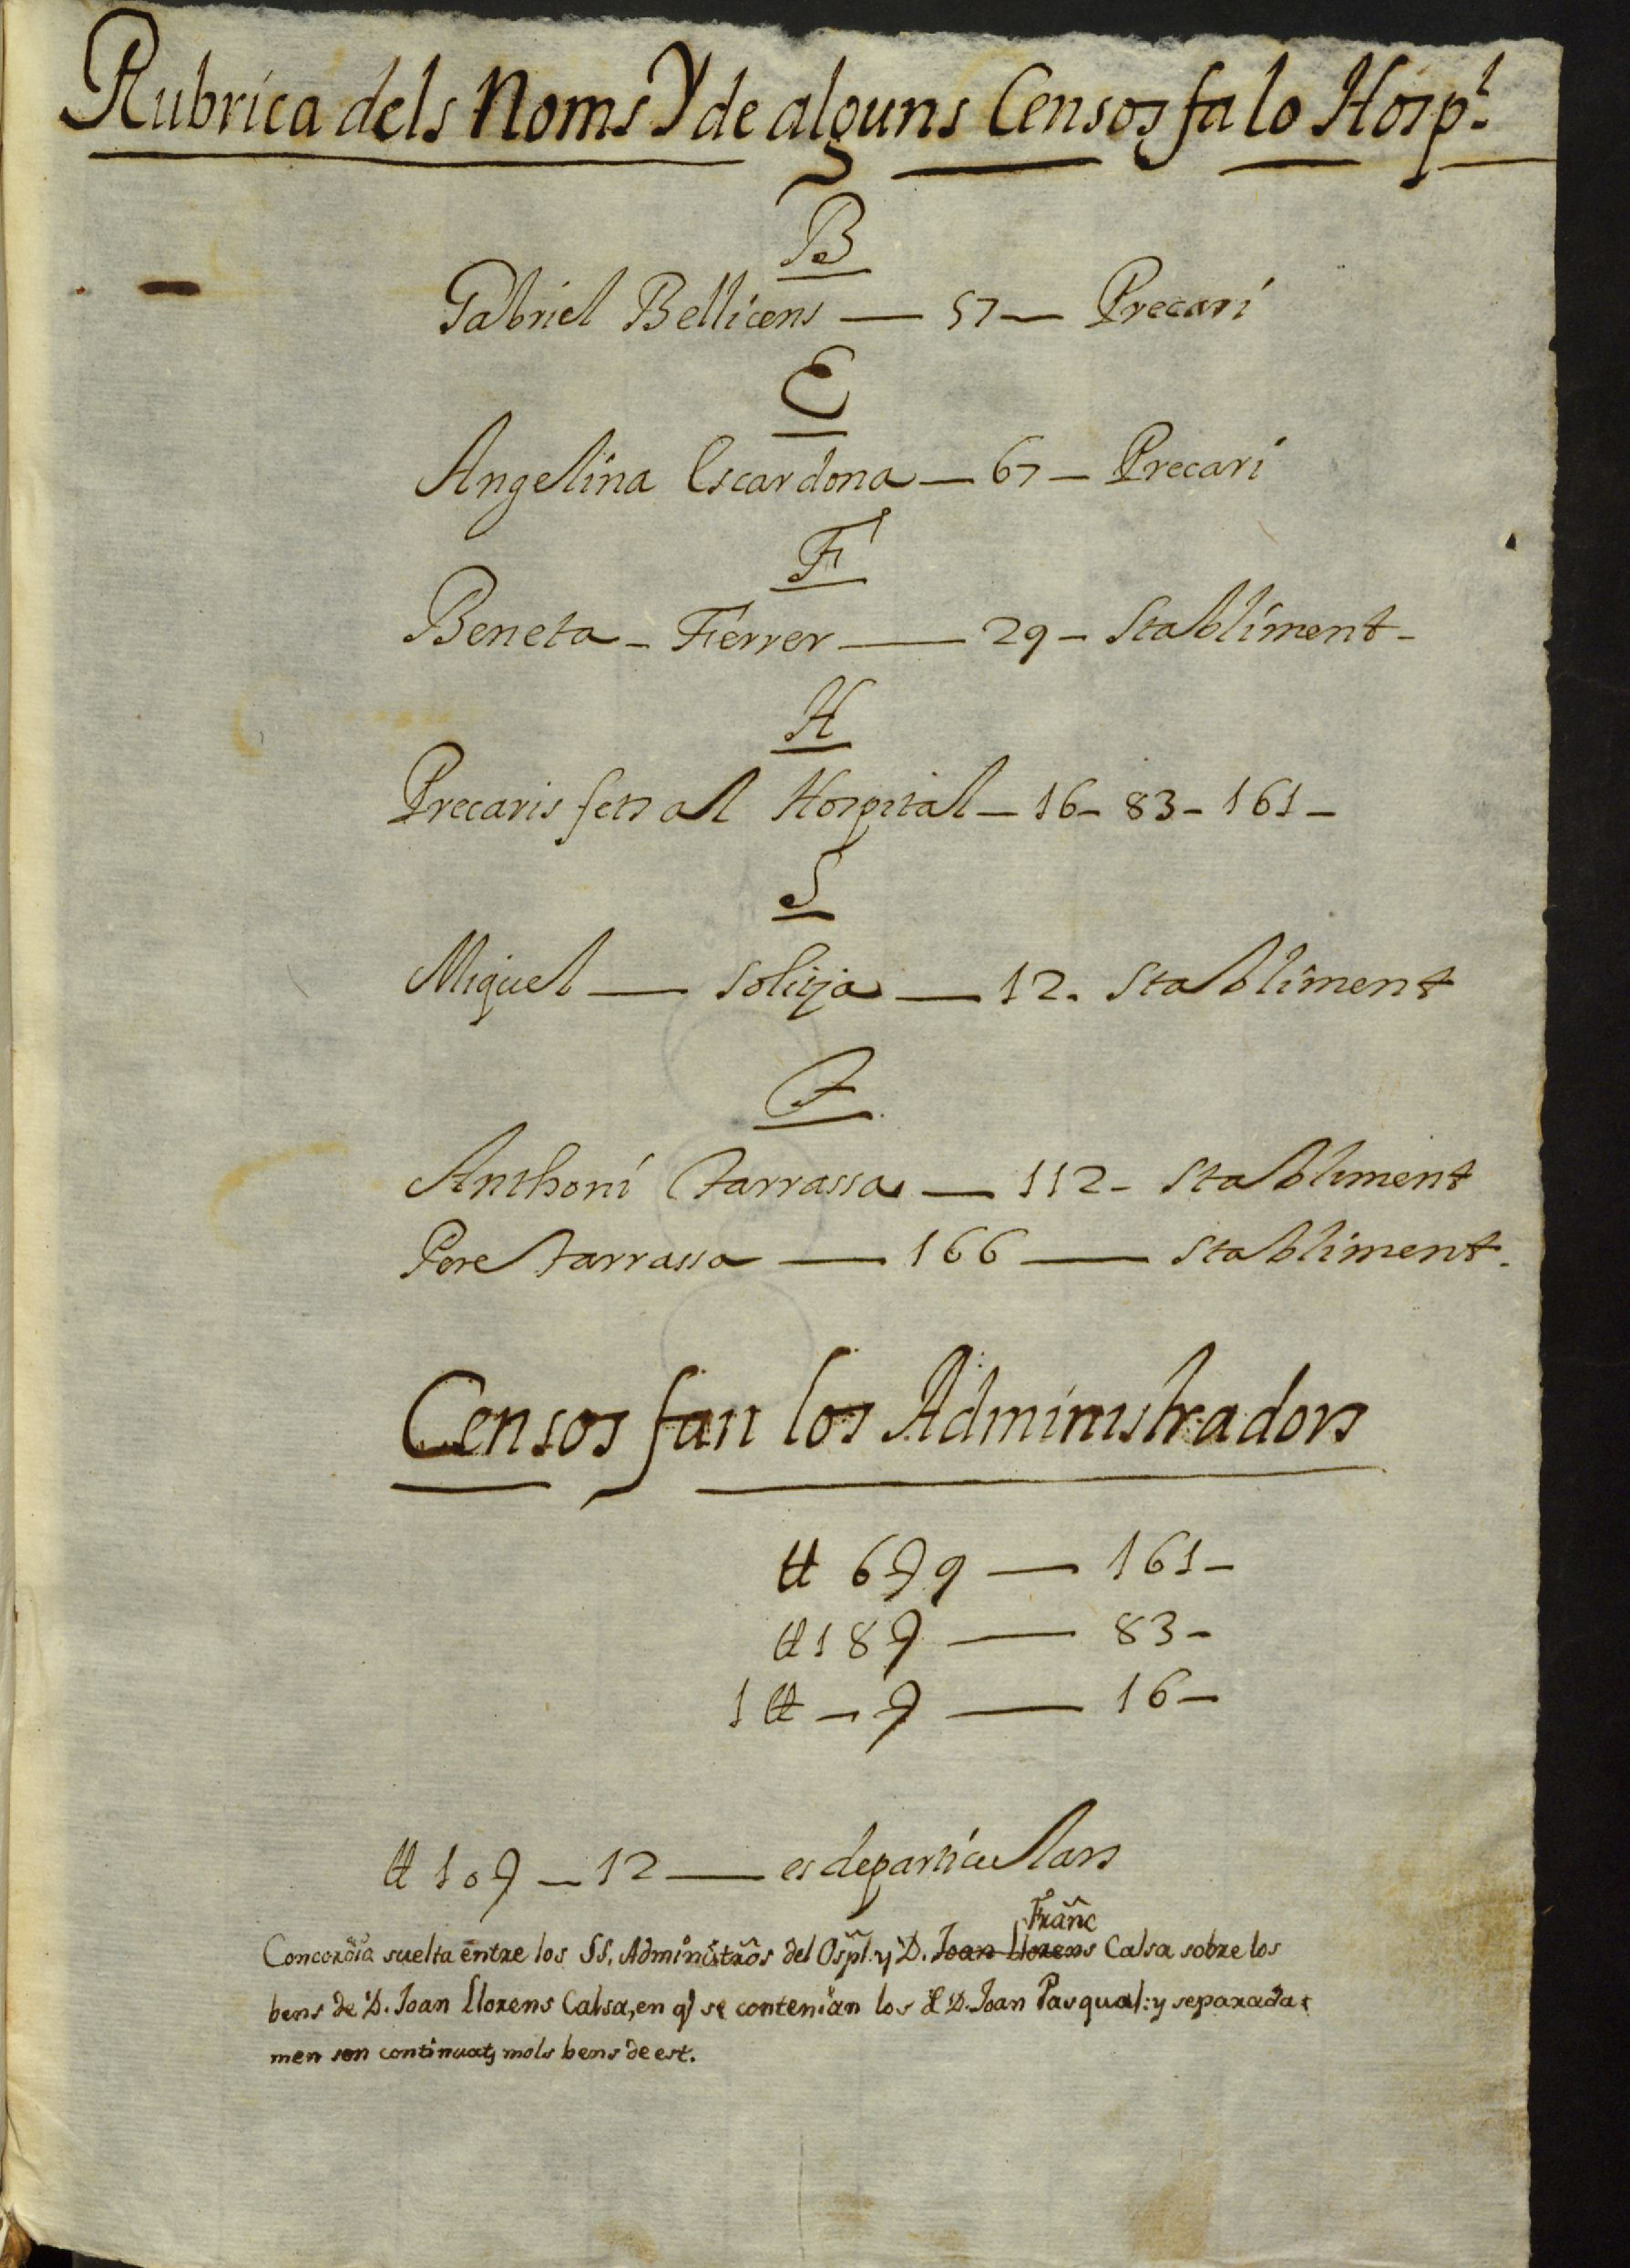 Rubrica dels Noms Y de alguns Censos fa lo Hosp.l
B
Gabriel Bellicens — 57 — Precari
E
Angelina Escardona — 67 — Precari
F
Beneta - Ferrer — 29 - Stabliment -
H
Precaris fets al Hospital - 16 - 83 - 161 -
S
Miquel — Solitja — 12. Stabliment
T
Anthoni Tarrassa — 112 - Stabliment
Pere Tarrassa — 166 — Stabliment.
Censos fan los Administradors
ll 6 s 9 — 161 -
ll 18 s — 83 -
1 ll - s — 16 -
ll 10 s — 12 — es de particulars
Franc
Concordia suelta entre los SS. Administros del Ospl. y D. Joan Llorens Calsa sobre los
bens de D. Joan Llorens Calsa, en q se contenian los d D. Joan Pasqual: y separada
men son continuats mols bens de est.